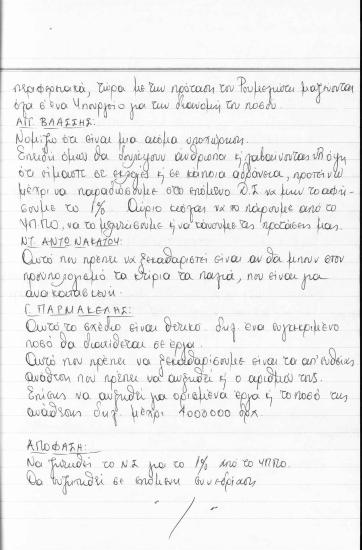 περιφερειακά, τώρα με την πρόταση του Ρουμεγιώτη μαζεύονται
όλα σ' ένα Υπουργείο για την διανομή του ποσού.
ΑΓΓ. ΒΛΑΣΣΗΣ:
Νομίζω ότι είναι μια ακόμα υποχώρηση.
Επειδή όμως θα δουλέψουν άνθρωποι ή λαβαίνοντας υπ' όψη
ότι είμαστε σε εκλογές ή σε κάποια αδράνεια, προτείνω
μέχρι να παραδώσουμε στο επόμενο Δ.Σ να μην το αφή-
σουμε το 1%. Αύριο κιόλας να το πάρουμε από το
ΥΠΠΟ, να το μελετήσουμε ή να κάνουμε τις προτάσεις μας.
ΝΤ. ΑΝΤΩΝΑΚΑΤΟΥ:
Αυτό που πρέπει να ξεκαθαριστεί είναι αν θα μπουν στον
προϋπολογισμό τα κτίρια τα παλιά, που είναι για
ανακατασκευή.
Γ. ΠΑΡΜΑΚΕΛΗΣ:
Αυτό το σχέδιο είναι θετικό. δηλ. ένα συγκεκριμένο
ποσό θα διατίθεται σε έργα.
Αυτό που πρέπει να ξεκαθαρίσουμε είναι τα απ' ευθείας
ανάθεση που πρέπει να αυξηθεί ή ο αριθμός της.
Επίσης να αυξηθεί για ορισμένα έργα ή το ποσό της
ανάθεσης δηλ. μέχρι 1000000 δρχ.
ΑΠΟΦΑΣΗ:
Να ζητηθεί το Ν.Σ για το 1% από το ΥΠΠΟ.
Θα συζητηθεί σε επόμενη συνεδρίαση